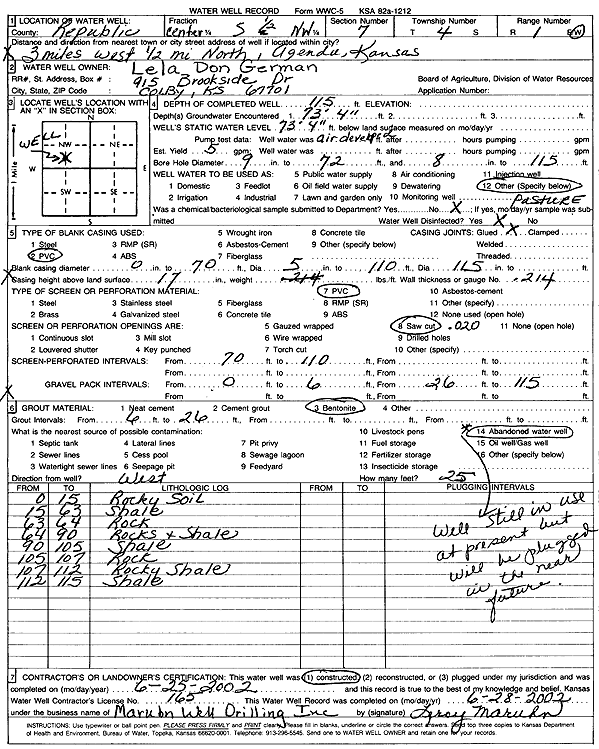 WATER WELL RECORD Form WWC-5 KSA 82a-1212
1 LOCATION OF WATER WELL: Fraction Section Number Township Number Range Number
County: Republic Center ¼ S ½ NW ¼ 7 T 4 S R 1 E/W
Distance and direction from nearest town or city street address of well if located within city?
3 miles west 1/2 mi North, Agenda, Kansas
2 WATER WELL OWNER: Lela Don German
RR#, St. Address, Box #: 915 Brookside Dr Board of Agriculture, Division of Water Resources
City, State, ZIP Code: Colby, KS 67701 Application Number:
3 LOCATE WELL'S LOCATION WITH AN "X" IN SECTION BOX:
N
WELL
NW NE
W E
SW SE
S
1 Mile
4 DEPTH OF COMPLETED WELL 115 ft. ELEVATION:
Depth(s) Groundwater Encountered 1 73'-4" ft. 2 ft. 3 ft.
WELL'S STATIC WATER LEVEL 73'-4" ft. below land surface measured on mo/day/yr
Pump test data: Well water was air develope ft. after hours pumping gpm
Est. Yield 5 gpm: Well water was ft. after hours pumping gpm
Bore Hole Diameter 9 in. to 72 ft., and 8 in. to 115 ft.
WELL WATER TO BE USED AS: 5 Public water supply 8 Air conditioning 11 Injection well
1 Domestic 3 Feedlot 6 Oil field water supply 9 Dewatering 12 Other (Specify below)
2 Irrigation 4 Industrial 7 Lawn and garden only 10 Monitoring well Pasture
Was a chemical/bacteriological sample submitted to Department? Yes No X; If yes, mo/day/yr sample was submitted
Water Well Disinfected? Yes X No
5 TYPE OF BLANK CASING USED: 5 Wrought iron 8 Concrete tile CASING JOINTS: Glued X Clamped
1 Steel 3 RMP (SR) 6 Asbestos-Cement 9 Other (specify below) Welded
2 PVC 4 ABS 7 Fiberglass Threaded
Blank casing diameter 0 in. to 70 ft., Dia 5 in. to 110 ft., Dia 115 in. to ft.
Casing height above land surface 17 in., weight .214 lbs./ft. Wall thickness or gauge No. .214
TYPE OF SCREEN OR PERFORATION MATERIAL: 7 PVC 10 Asbestos-cement
1 Steel 3 Stainless steel 5 Fiberglass 8 RMP (SR) 11 Other (specify)
2 Brass 4 Galvanized steel 6 Concrete tile 9 ABS 12 None used (open hole)
SCREEN OR PERFORATION OPENINGS ARE: 5 Gauzed wrapped 8 Saw cut .020 11 None (open hole)
1 Continuous slot 3 Mill slot 6 Wire wrapped 9 Drilled holes
2 Louvered shutter 4 Key punched 7 Torch cut 10 Other (specify)
SCREEN-PERFORATED INTERVALS: From 70 ft. to 110 ft., From ft. to ft.
From ft. to ft., From ft. to ft.
GRAVEL PACK INTERVALS: From 0 ft. to 6 ft., From 26 ft. to 115 ft.
From ft. to ft., From ft. to ft.
6 GROUT MATERIAL: 1 Neat cement 2 Cement grout 3 Bentonite 4 Other
Grout Intervals: From 6 ft. to 26 ft., From ft. to ft., From ft. to ft.
What is the nearest source of possible contamination: 10 Livestock pens 14 Abandoned water well
1 Septic tank 4 Lateral lines 7 Pit privy 11 Fuel storage 15 Oil well/Gas well
2 Sewer lines 5 Cess pool 8 Sewage lagoon 12 Fertilizer storage 16 Other (specify below)
3 Watertight sewer lines 6 Seepage pit 9 Feedyard 13 Insecticide storage
Direction from well? West How many feet? 25
FROM TO LITHOLOGIC LOG FROM TO PLUGGING INTERVALS
0 15 Rocky Soil
15 63 Shale
63 64 Rock
64 90 Rocks & Shale
90 105 Shale
105 107 Rock
107 112 Rocky Shale
112 115 Shale
Well still in use
at present but
will be plugged
in the near
future.
7 CONTRACTOR'S OR LANDOWNER'S CERTIFICATION: This water well was (1) constructed, (2) reconstructed, or (3) plugged under my jurisdiction and was
completed on (mo/day/year) 6-25-2002 and this record is true to the best of my knowledge and belief. Kansas
Water Well Contractor's License No. 165 This Water Well Record was completed on (mo/day/yr) 6-28-2002
under the business name of Maruhn Well Drilling Inc by (signature) Leroy Maruhn
INSTRUCTIONS: Use typewriter or ball point pen. PLEASE PRESS FIRMLY and PRINT clearly. Please fill in blanks, underline or circle the correct answers. Send top three copies to Kansas Department
of Health and Environment, Bureau of Water, Topeka, Kansas 66620-0001. Telephone: 913-296-5545. Send one to WATER WELL OWNER and retain one for your records.